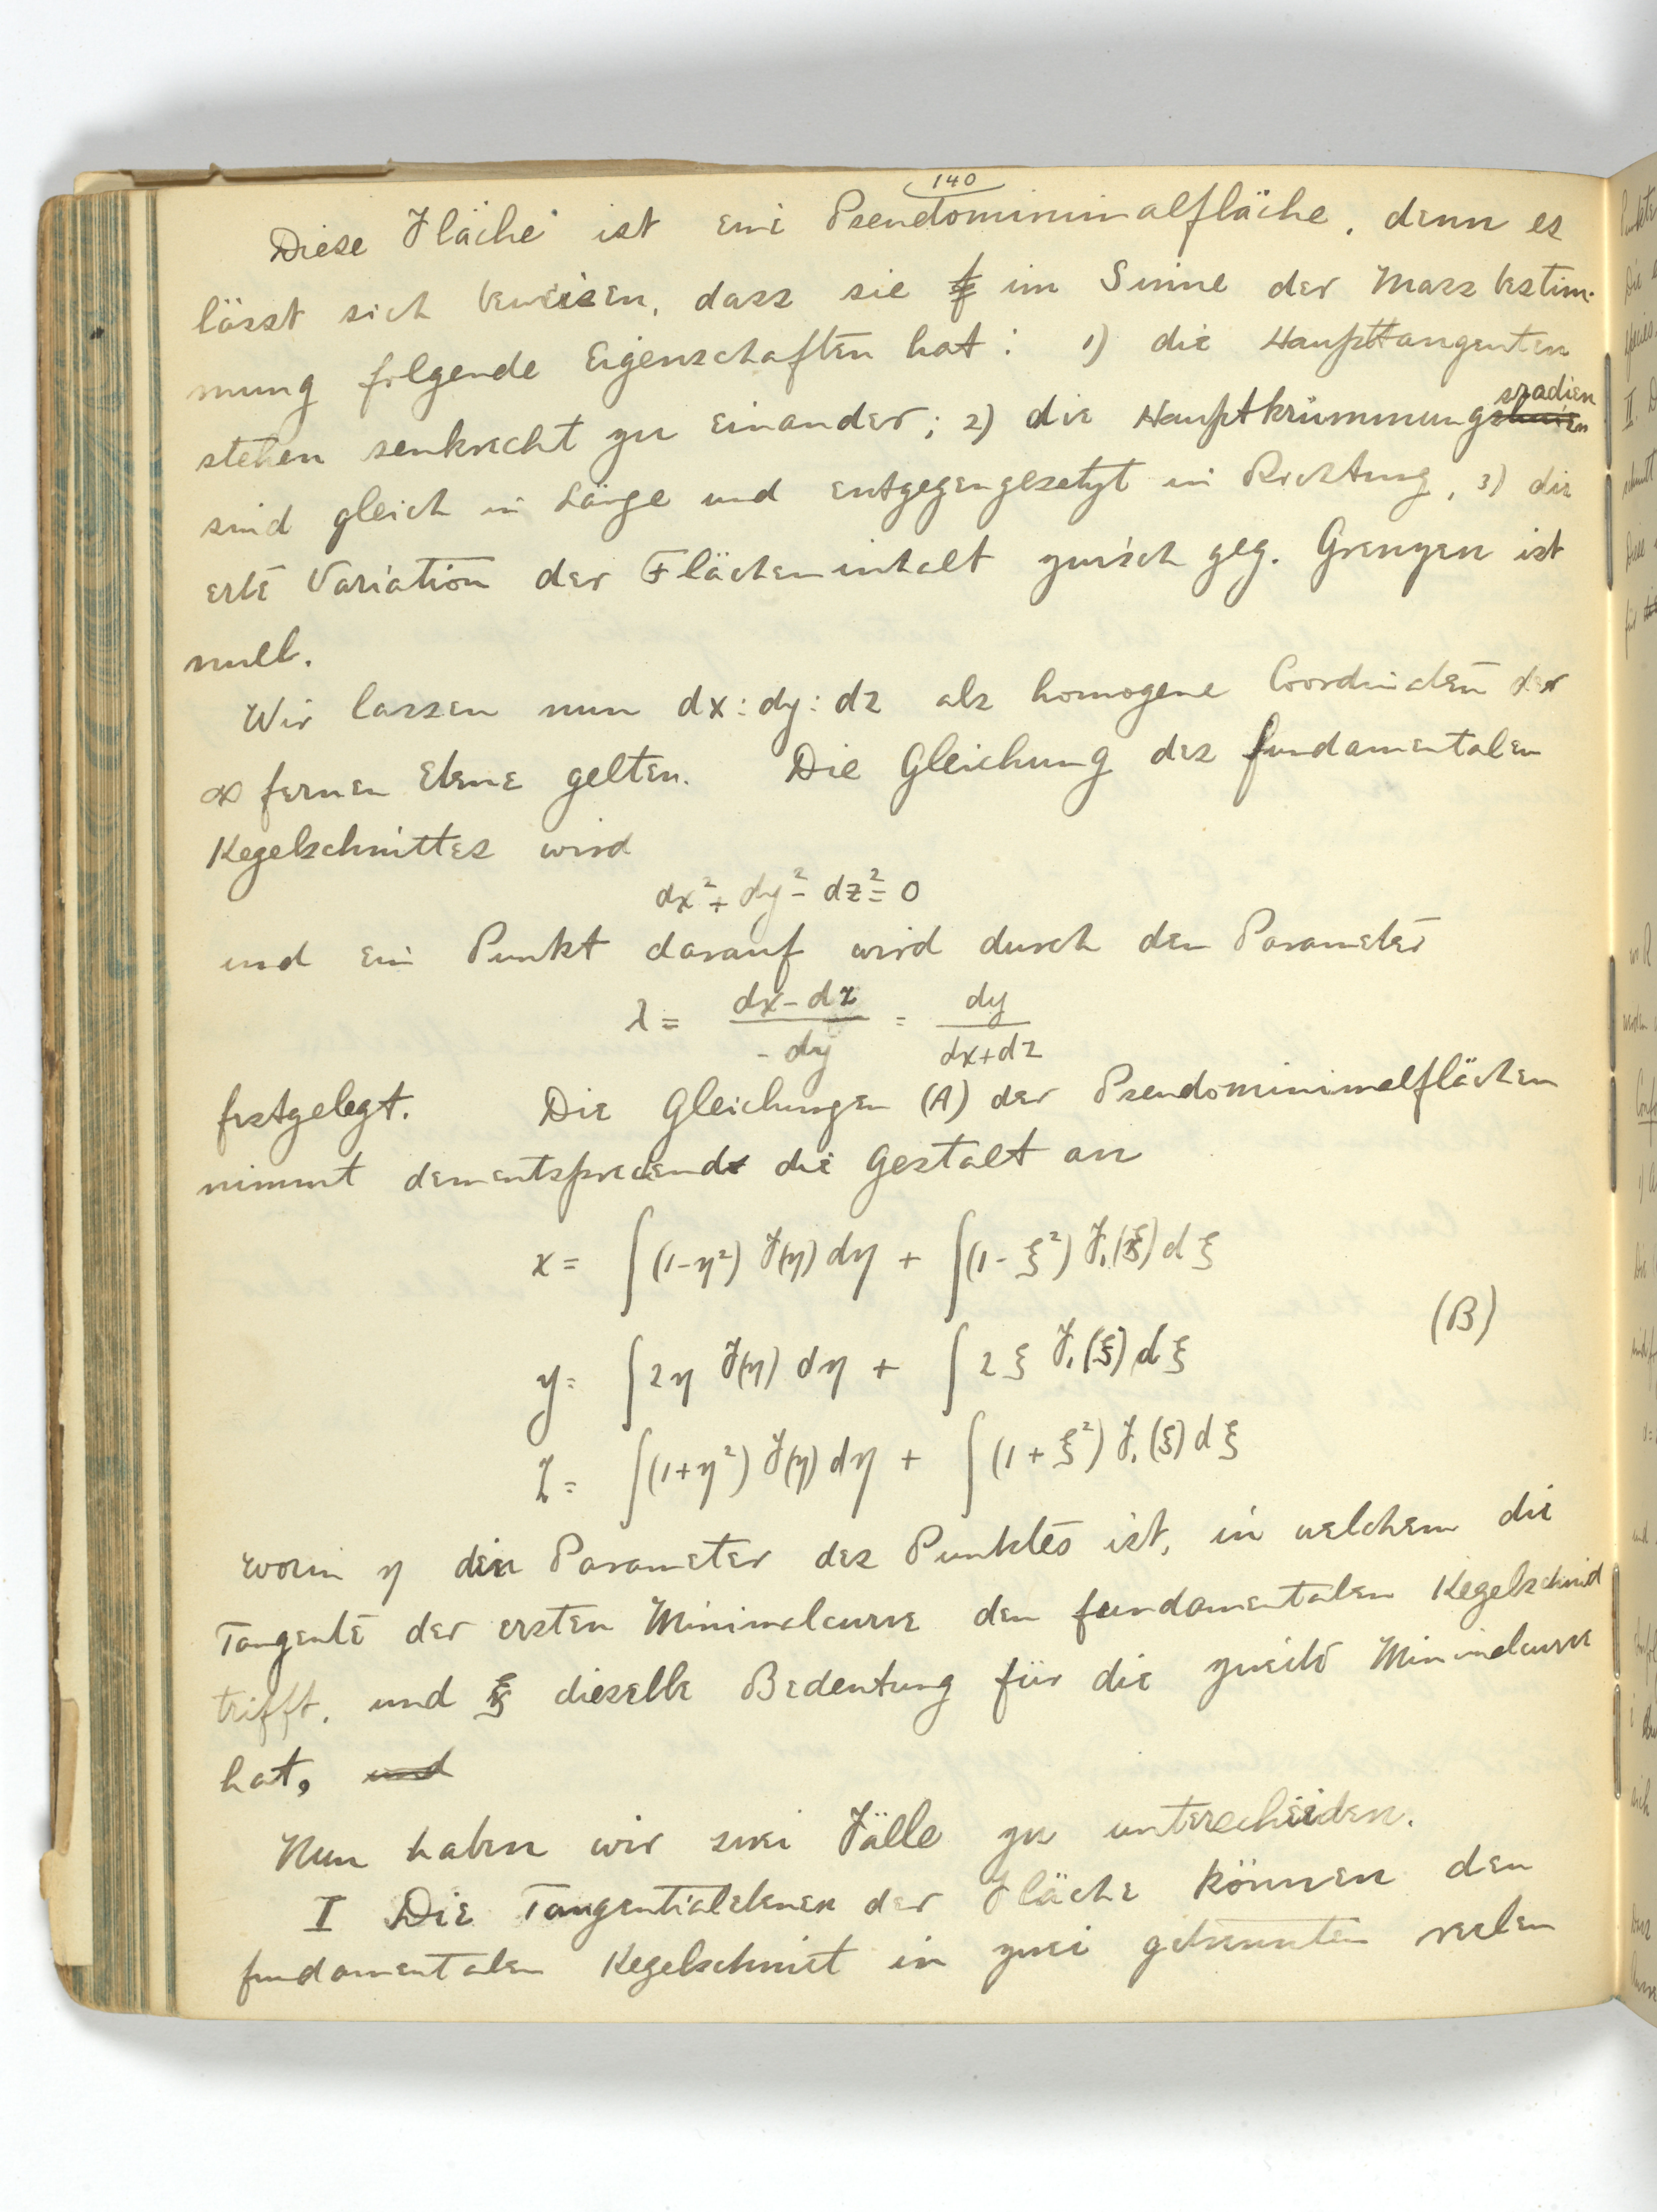 140
Diese Fläche ist eine Pseudominimalfläche, denn es
lässt sich beweisen, dass sie im Sinne der Massbestim-
mung folgende Eigenschaften hat: 1) die Haupttangenten
stehen senkrecht zu einander; 2) die Hauptkrümmungsradien
sind gleich in Länge und entgegengesetzt in Richtung, 3) die
erste Variation der Flächeninhalt zwisch geg. Grenzen ist
null.
Wir lassen nun dx:dy:dz als homogene Coordinaten der
∞ fernen Ebene gelten. Die Gleichung des fundamentalen
Kegelschnittes wird
dx² + dy² - dz² = 0
und ein Punkt darauf wird durch den Parameter
λ = (dx - dz)/(- dy) = dy/(dx + dz)
festgelegt. Die Gleichungen (A) der Pseudominimalflächen
nimmt dementsprechend die Gestalt an
x = ∫(1-η²) F(η) dη + ∫(1-ξ²) F₁(ξ) dξ
y = ∫2η F(η) dη + ∫2ξ F₁(ξ) dξ (B)
z = ∫(1+η²) F(η) dη + ∫(1+ξ²) F₁(ξ) dξ
worin η den Parameter des Punktes ist, in welchem die
Tangente der ersten Minimalcurve den fundamentalen Kegelschnid
trifft, und ξ dieselbe Bedeutung für die zweite Minimalcurve
hat, und
Nun haben wir zwei Fälle zu unterscheiden.
I Die Tangentialebenen der Fläche können den
fundamentalen Kegelschnit in zwei getrennten reelen